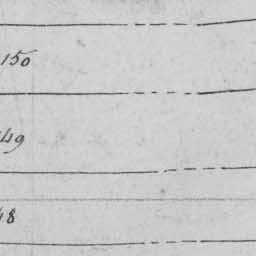 150
49
48